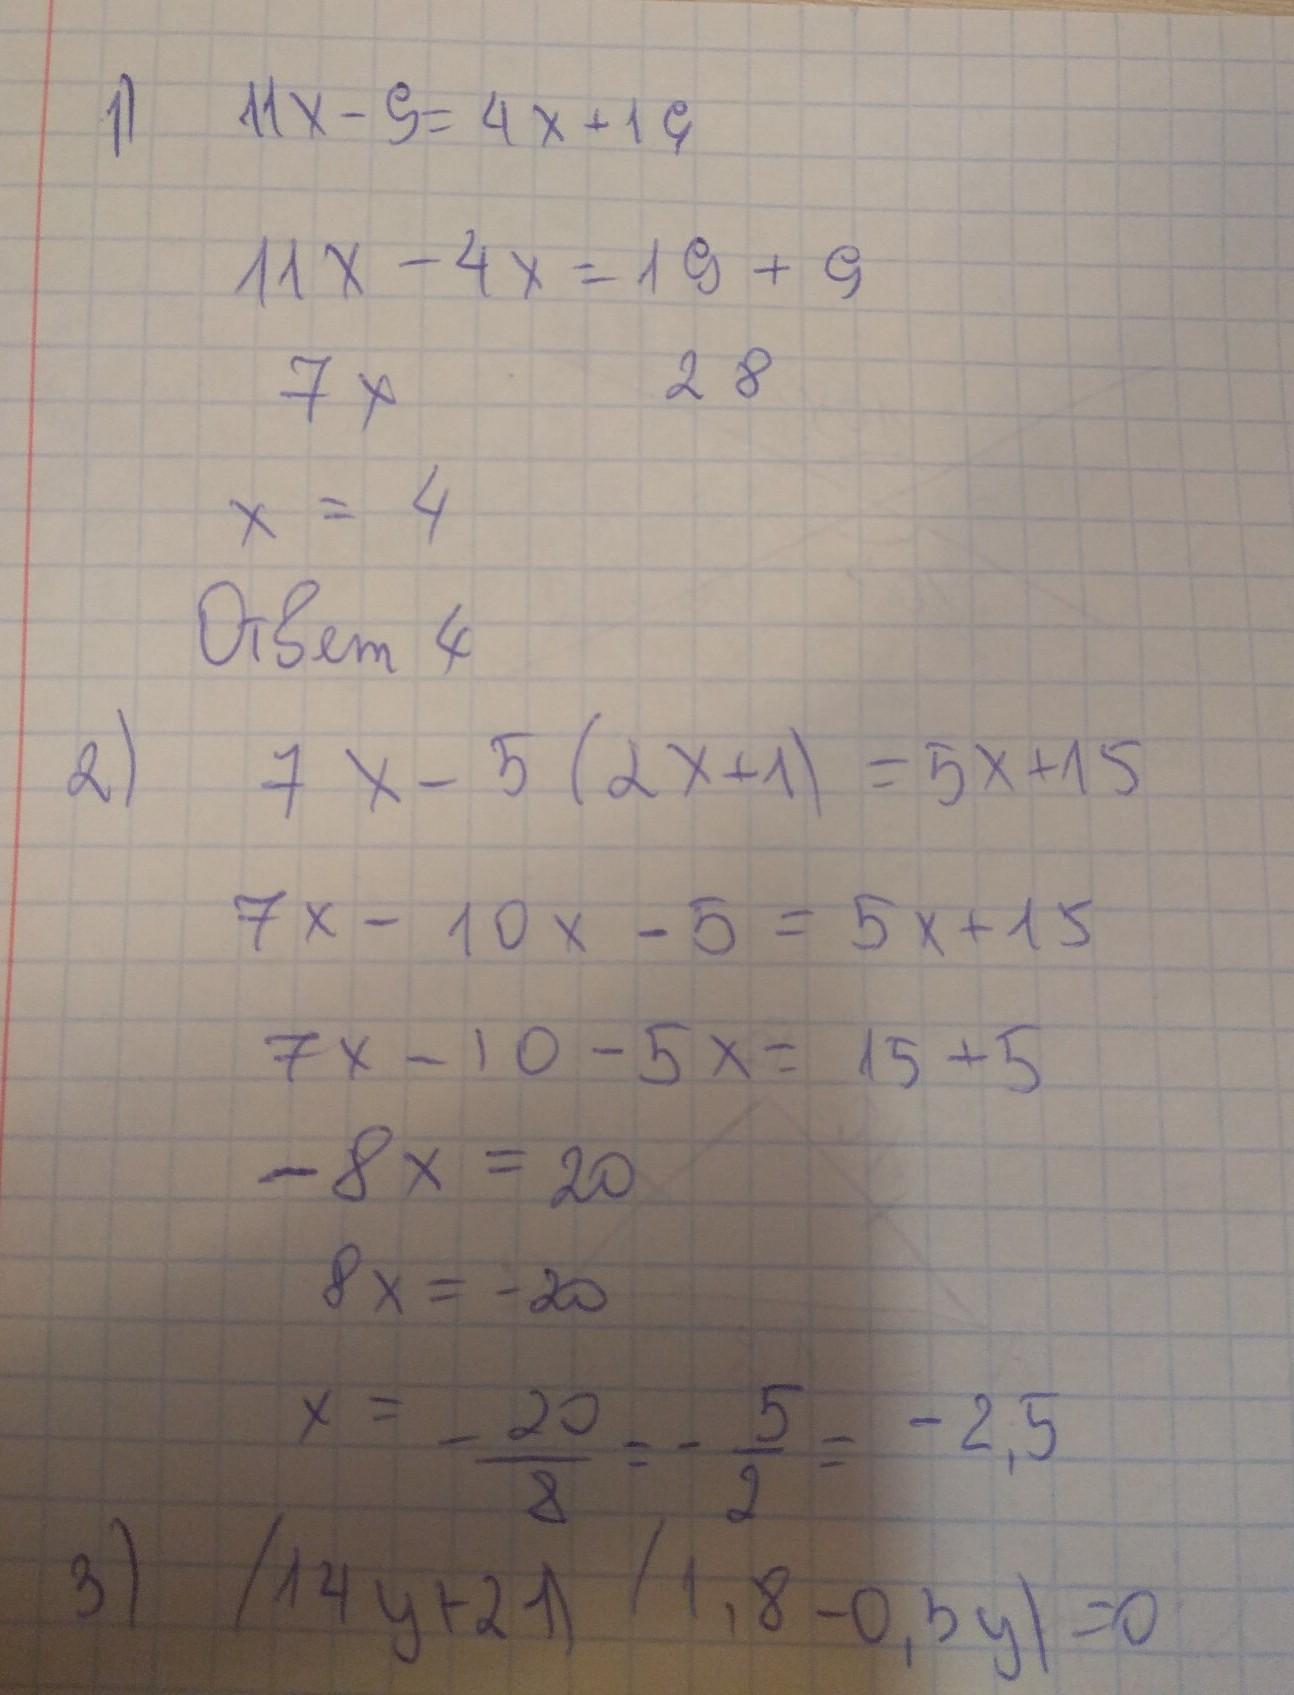 1) 11x - 9 = 4x + 19
11x - 4x = 19 + 9
7x 28
x = 4
Ответ 4
2) 7x - 5 (2x+1) = 5x+15
7x - 10x - 5 = 5x+15
7x - 10 - 5x = 15 + 5
-8x = 20
8x = -20
x = - 20/8 = - 5/2 = -2,5
3) (14y+21) (1,8-0,3y) = 0